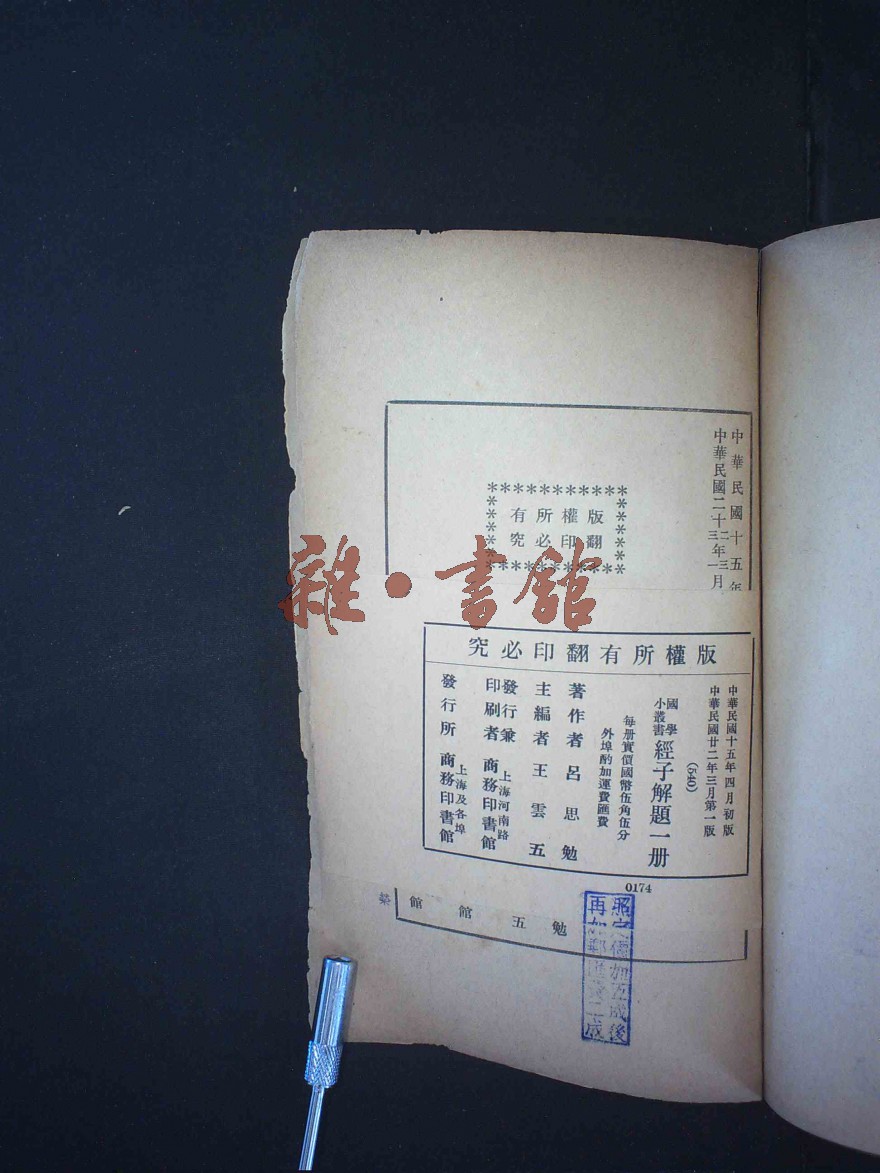 中華民國十五年
中華民國二十二年三月
三
一月
版權所有
翻印必究
雜·書館
版權所有翻印必究
中華民國十五年四月初版
中華民國廿二年三月第一版
(540)
國學
小叢書
經子解題一册
每册實價國幣伍角伍分
外埠酌加運費匯費
著作者 呂思勉
主編者 王雲五
發行兼
印刷者
上海河南路
商務印書館
發行所
上海及各埠
商務印書館
0174
勉
五
館
館
照定價加五成後
再加郵匯費二成